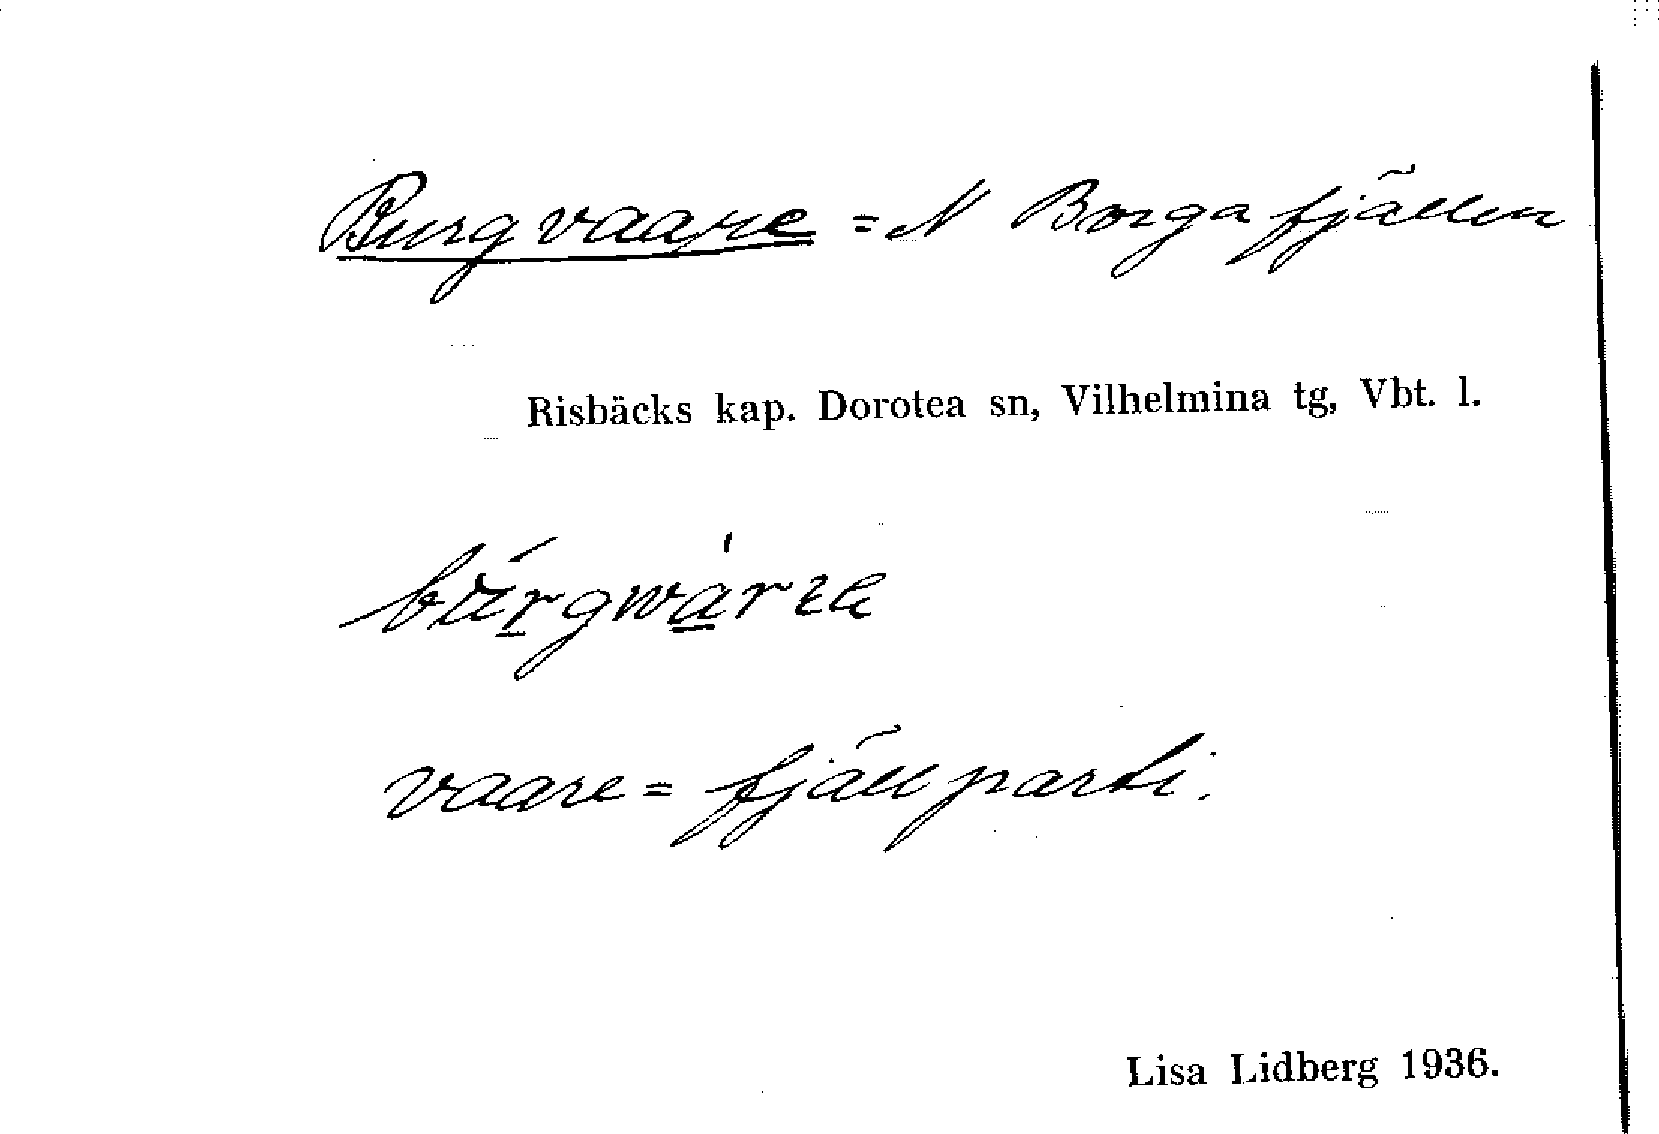 Burgvaare = N Borgafjällen
Risbäcks kap. Dorotea sn, Vilhelmina tg, Vbt. l.
vaare = fjällparti.
Lisa Lidberg 1936.